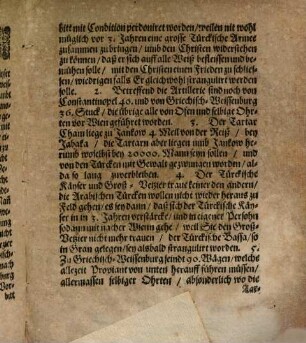 bitt mit Condition perdoniret worden / weilen nit wohl
müglich vor 3. Jahren eine grosse Türckische Armee
zusammen zu bringen / unnd den Christen widerstehen
zu können / daß er sich auff alle Weiß befleissen und be-
mühen solle / mit den Christen einen Frieden zu schlies-
sen / wiedrigen falls Er gleichwohl stranguliret werden
solle. 2. Betreffend die Artillerie sind noch von
Constantinopel 40. und von Griechisch-Weissenburg
36. Stuck / die übrige alle von Ofen und selbiger
Ohrten vor Wien geführet worden. 3. Der Tartar
Cham liege zu Jankovo 4. Meil von der Reiß / bey
Jabaka / die Tartarn aber liegen umb Jankovo he-
rumb welche bey 20000. Mann seyn sollen / und
von den Türcken mit Gewalt gezwungen worden / al-
da so lang zu verbleiben. 4. Der Türckische
Käyser und Groß-Vezier traut keiner den andern /
die Arabischen Türcken wollen nicht wieder heraus zu
Feld gehen / es sey dann / daß sich der Türckische Käy-
ser in in 3. Jahren verstärcke / und in eigener Persohn
sodann mit nacher Wienn gehe / weil Sie den Groß-
Vezier nicht mehr trauen / der Türckische Bassa / so
in Gran gelegen / sey alsbald stranguliret worden. 5.
Zu Griechisch-Weissenburg seind 90. Wägen / welche
allezeit Proviant von unten herauff führen müssen /
allermassen selbiger Ohrten / absonderlich wo die